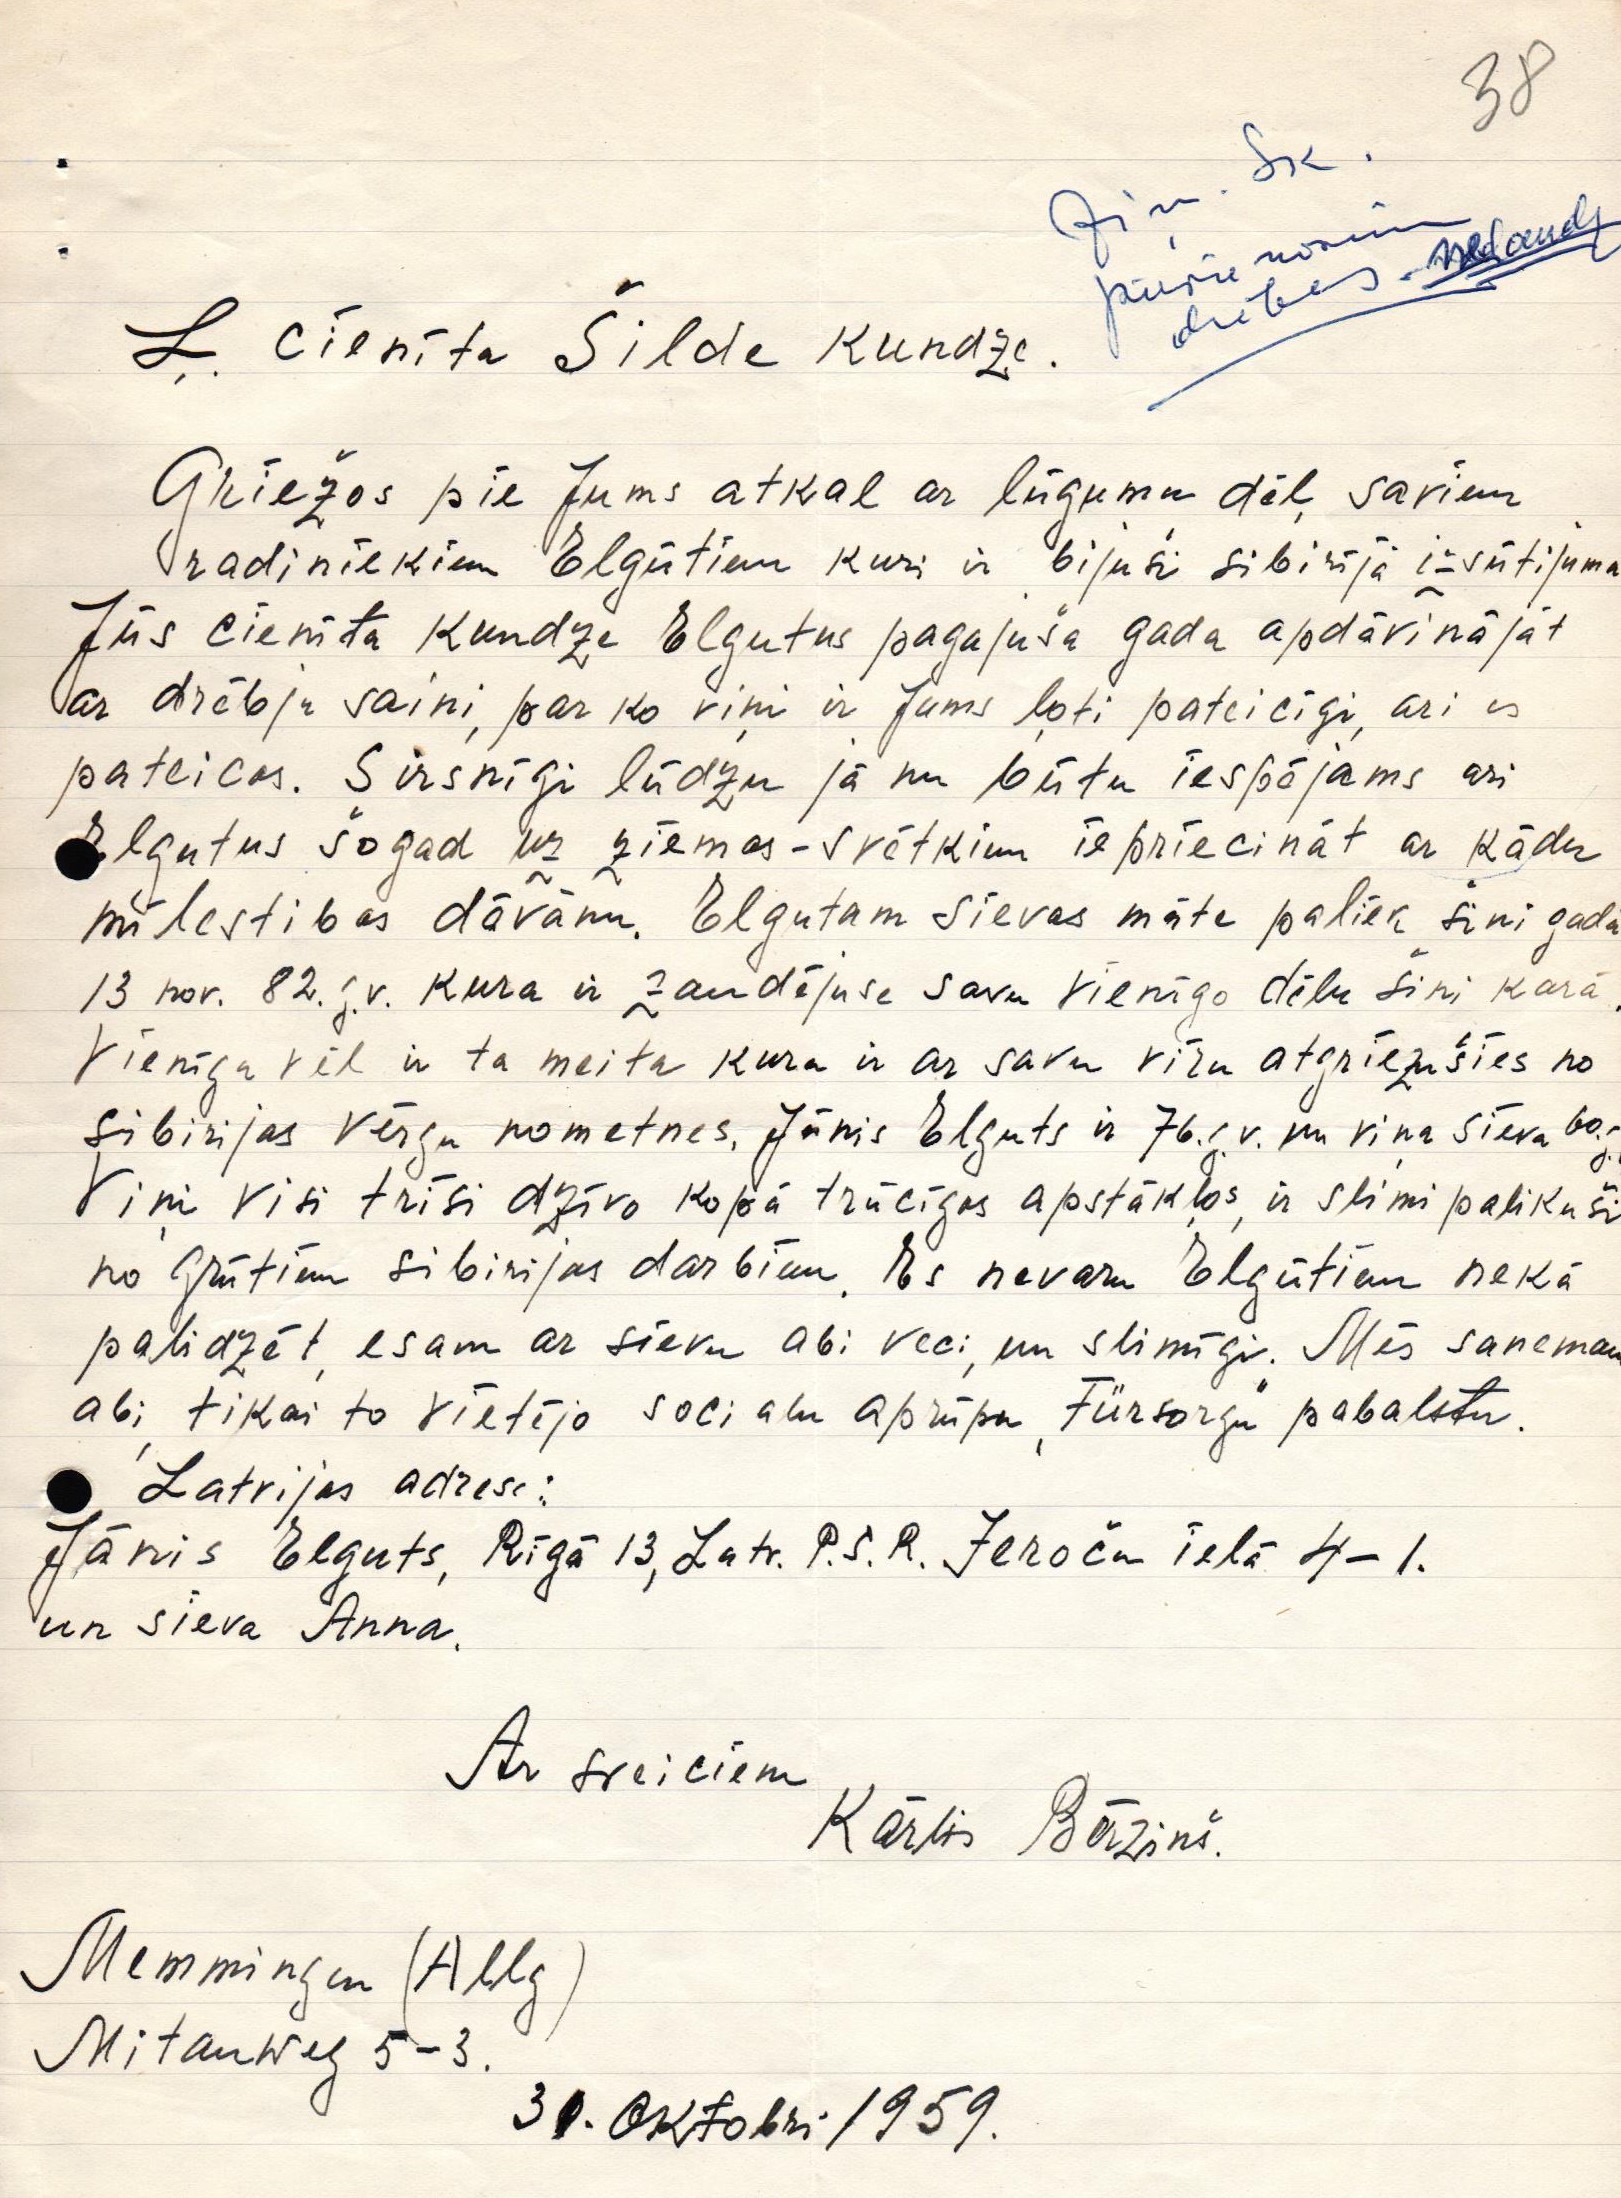 38
Ziņ. Sk.
pievienosim
drēbes.
Ļ. cienīta Šilde kundze.
Griežos pie Jums atkal ar lūgumu dēļ saviem
radiniekiem Elgūtiem kuri ir bijuši sibirijā izsūtijuma
Jūs cienīta kundze Elgutus pagajuša gada apdāvinājāt
ar drēbju saini, par ko viņi ir Jums ļoti pateicīgi, ari es
pateicos. Sirsnīgi lūdzu jā nu būtu iespējams ari
Elgutus šogad uz ziemas-svētkiem iepriecināt ar kādu
mīlestibas dāvānu. Elgutam sievas māte paliek šini gadā
13 nov. 82.g.v. kura ir zaudējuse savu vienīgo dēlu šini karā.
Vienīga vēl ir ta meita kura ir ar savu vīru atgriezušies no
sibirijas vērgu nometnes. Jānis Elguts ir 76.g.v. un viņa sieva 60.g.
Viņi visi trīsi dzīvo kopā trūcīgos apstākļos, ir slimi palikuši
no grūtiem sibirijas darbiem. Es nevaru Elgūtiem nekā
palidzēt, esam ar sievu abi veci, un slimīgi. Mēs saņemam
abi, tikai to vietējo socialu aprūpu „Fürsorgu" pabalstu.
Latvijas adrese:
Jānis Elguts, Rīgā 13, Latv. P.S.R. Ieroču ielā 4-1.
un sieva Anna.
Ar sveiciem
Kārlis Bērziņš.
Memmingen (Allg)
Mitauweg 5-3.
31. Oktobri 1959.